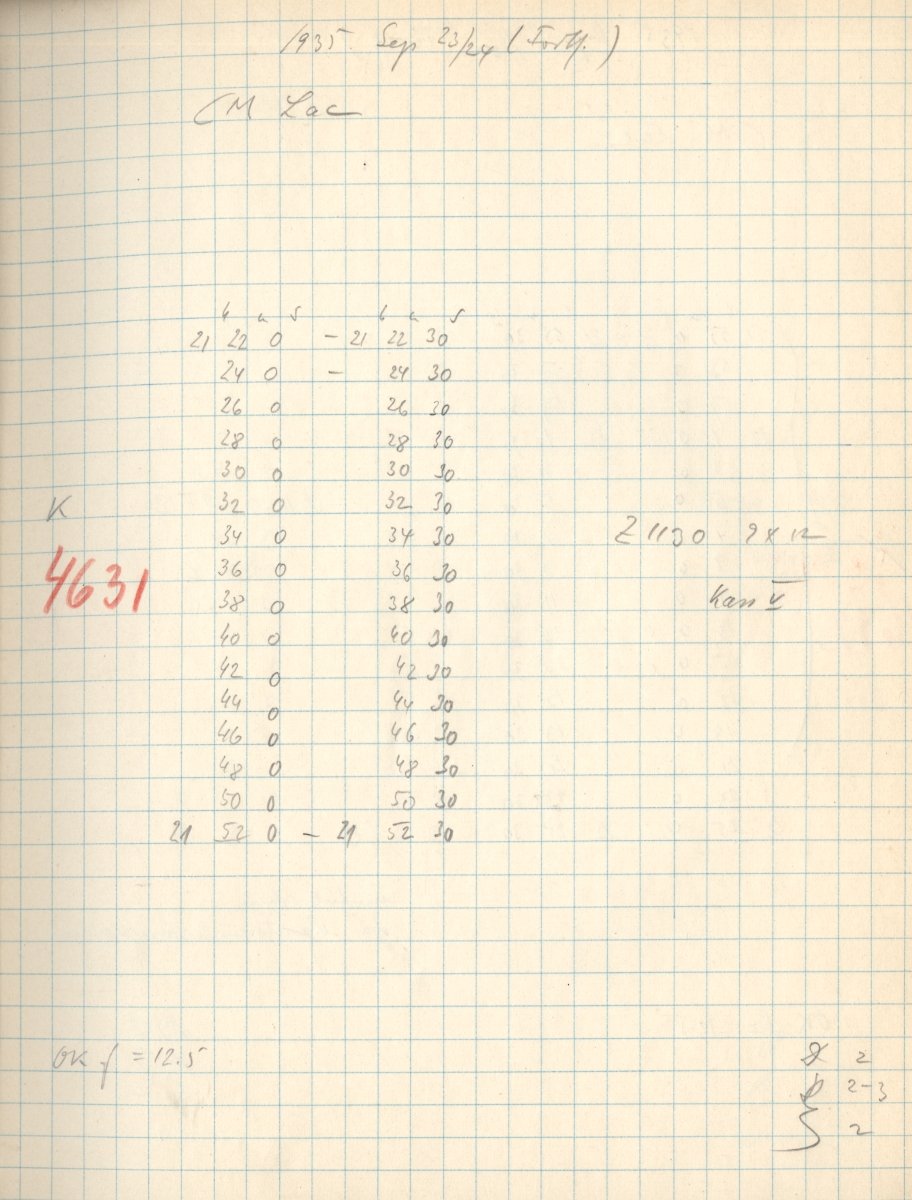 1935 Sep 23/24 (Forts.)
CM Lac
h m s h m s
21 22 0 – 21 22 30
24 0 – 24 30
26 0 26 30
28 0 28 30
30 0 30 30
K 32 0 32 30
34 0 34 30 Z 1130 9x12
4631 36 0 36 30
38 0 38 30 Kass V
40 0 40 30
42 0 42 30
44 0 44 30
46 0 46 30
48 0 48 30
50 0 50 30
21 52 0 – 21 52 30
OK f = 12.5
2
2-3
2